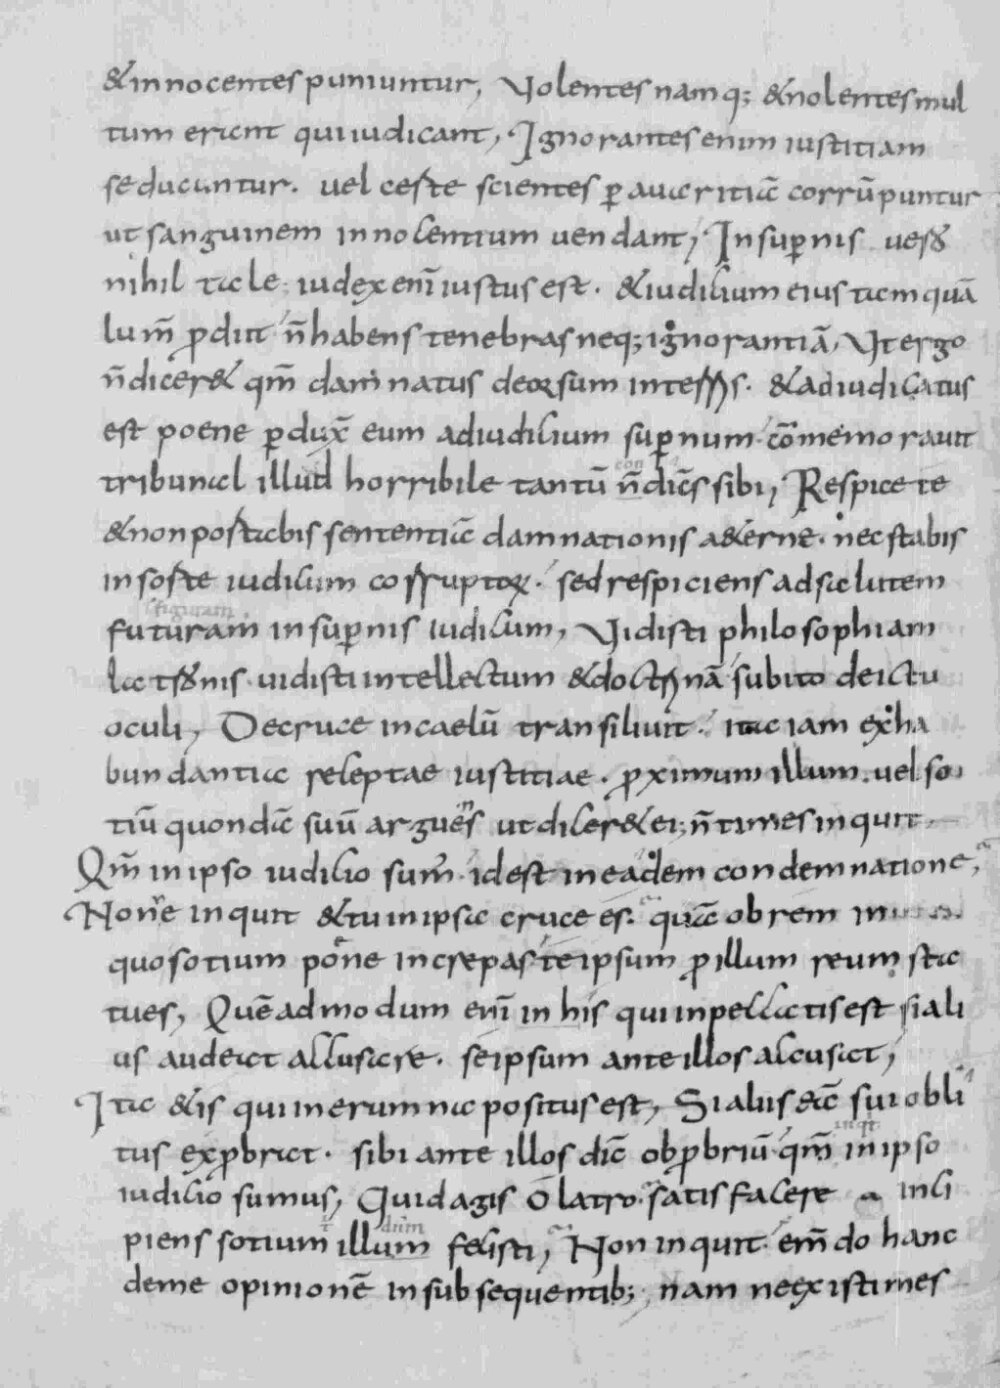 & innocentes puniuntur, Volentes namq; & nolentes mul
tum erunt qui iudicant, Ignorantes enim iustitiam
seducuntur. uel certe scientes p̱ auaritiā corrūpuntur
ut sanguinem innocentium uendant, In sup̱nis uero
nihil tale. iudex enī iustus est. & iudicium eius tamquā
lum̄ p̱diit n̄ habens tenebras neq; ignorantiā, Vt ergo
n̄ dicer& qm̄ damnatus deorsum in terris. & adiudicatus
est poene p̱dux̄ eum ad iudicium sup̱num. cōmemorauit
tribunal illud horribile tantū n̄ dicēs sibi, Respice te
& non postabis sententiā damnationis a&erne. nec stabis
in sorte iudicum corruptoꝝ. sed respiciens ad salutem
futuram in sup̱nis iudicum, Vidisti philosophiam
latronis uidisti intellectum & doctrinā subito de ictu
oculi, De cruce in caelū transiliuit. ita iam ex ha
bundantia receptae iustitiae. p̱ximum illum uel so
tiū quondā suū arguens ut dicer& ei; n̄ times inquit
Qm̄ in ipso iudicio sum̄ id est in eadem condemnatione,
Nonne inquit & tu in ipsa cruce es. quā ob rem
quo sotium pone increpas te ipsum p̱ illum reum sta
tues, Quēadmodum enī in his qui in peccatis est si ali
us audeat accusare. se ipsum ante illos accusat,
Ita & is qui in erumna positus est, Si aliis &ā sui obli
tus exp̱brat. sibi ante illos dāt obp̱briū qm̄ in ipso
iudicio sumus, Quid agis o latro satisfacere inci
piens sotium illum fecisti, Non inquit em̄do hanc
de me opinionē in subsequentib; nam ne existimes